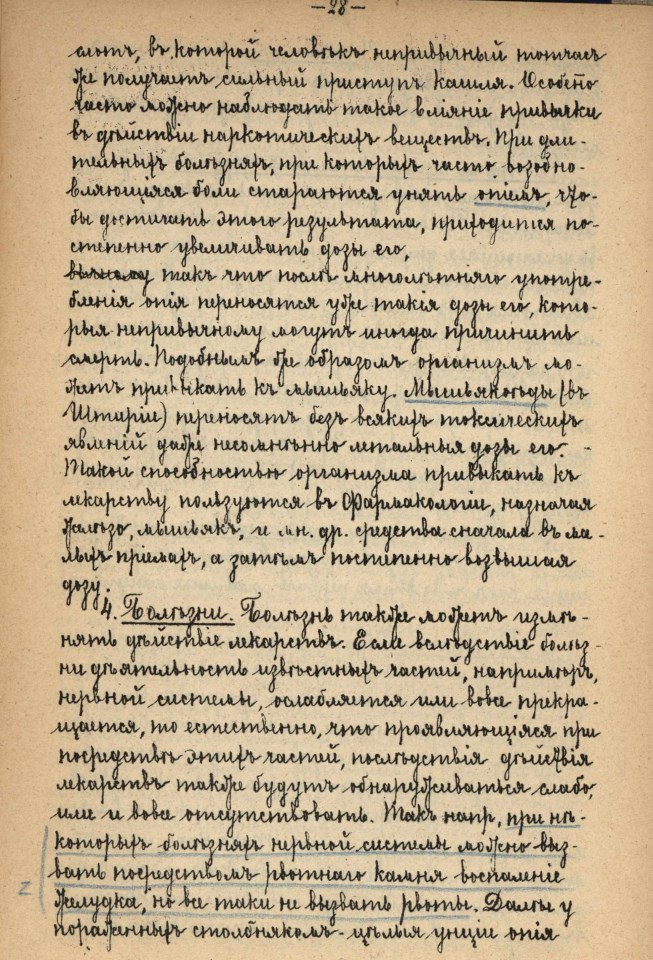 —28—
слотъ, въ которой человѣкъ непривычный тотчасъ
же получаетъ сильный приступъ кашля. Особено
часто можно наблюдать такое вліяніе привычки
въ дѣйствіи наркотическихъ веществъ. При дли-
тельныхъ болѣзняхъ, при которыхъ часто возобно-
вляющіяся боли стараются унять опіемъ, что-
бы достигать этого результата, приходится по-
степенно увеличивать дозы его,
такъ что послѣ многолѣтняго употре-
бленія опія переносятся уже такія дозы его, кото-
рыя непривычному могутъ иногда причинить
смерть. Подобнымъ же образомъ организмъ мо-
жетъ привыкать къ мышьяку. Мышьякоѣды (въ
Штиріи) переносятъ безъ всякихъ токсическихъ
явленій даже несомнѣнно летальныя дозы его.
Такой способностью организма привыкать къ
лекарству пользуются въ Фармакологіи, назначая
желѣзо, мышьякъ, и мн. др. средства сначала въ ма-
лыхъ пріемахъ, а затѣмъ постепенно возвышая
дозу.
4. Болѣзни. Болѣзнь также можетъ измѣ-
нять дѣйствіе лекарствъ. Если вслѣдствіе болѣз-
ни дѣятельность извѣстныхъ частей, напримѣръ,
нервной системы, ослабляется или вовсе прекра-
щается, то естественно, что проявляющіяся при
посредствѣ этихъ частей, послѣдствія дѣйствія
лекарствъ также будутъ обнаруживаться слабо,
или и вовсе отсутствовать. Такъ напр, при нѣ-
которыхъ болѣзняхъ нервной системы можно выз-
вать посредствомъ рвотнаго камня воспаленіе
желудка, но все таки не вызвать рвоты. Далѣе у
пораженныхъ столбнякомъ - цѣлыя унціи опія